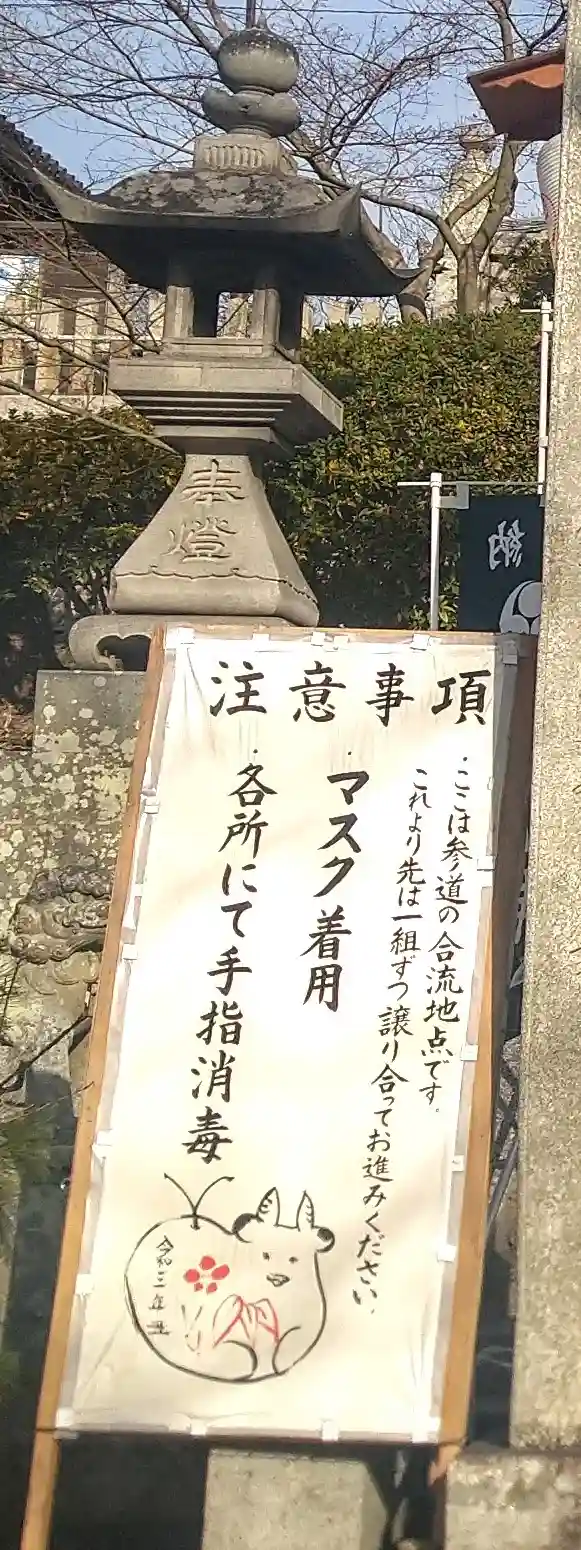 奉燈
納
注意事項
・ここは参道の合流地点です。
これより先は一組ずつ譲り合ってお進みください。
・マスク着用
・各所にて手指消毒
令和三年丑